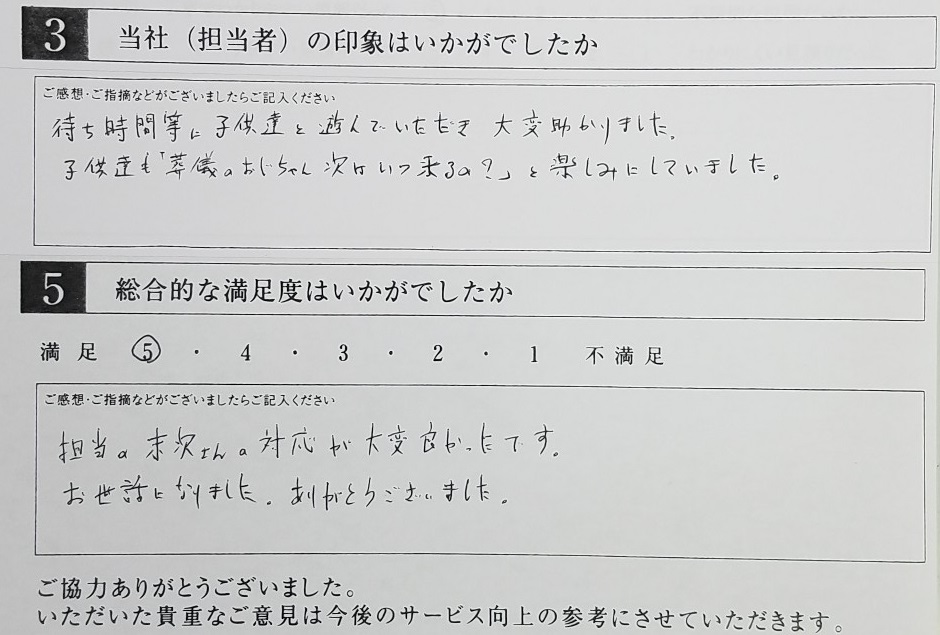 3 当社（担当者）の印象はいかがでしたか
ご感想・ご指摘などがございましたらご記入ください
待ち時間等に子供達と遊んでいただき 大変助かりました。
子供達も「葬儀のおじちゃん次はいつ来るの?」と楽しみにしていました。
5 総合的な満足度はいかがでしたか
満足 5 ・ 4 ・ 3 ・ 2 ・ 1 不満足
ご感想・ご指摘などがございましたらご記入ください
担当の末次さんの対応が大変良かったです。
お世話になりました。ありがとうございました。
ご協力ありがとうございました。
いただいた貴重なご意見は今後のサービス向上の参考にさせていただきます。